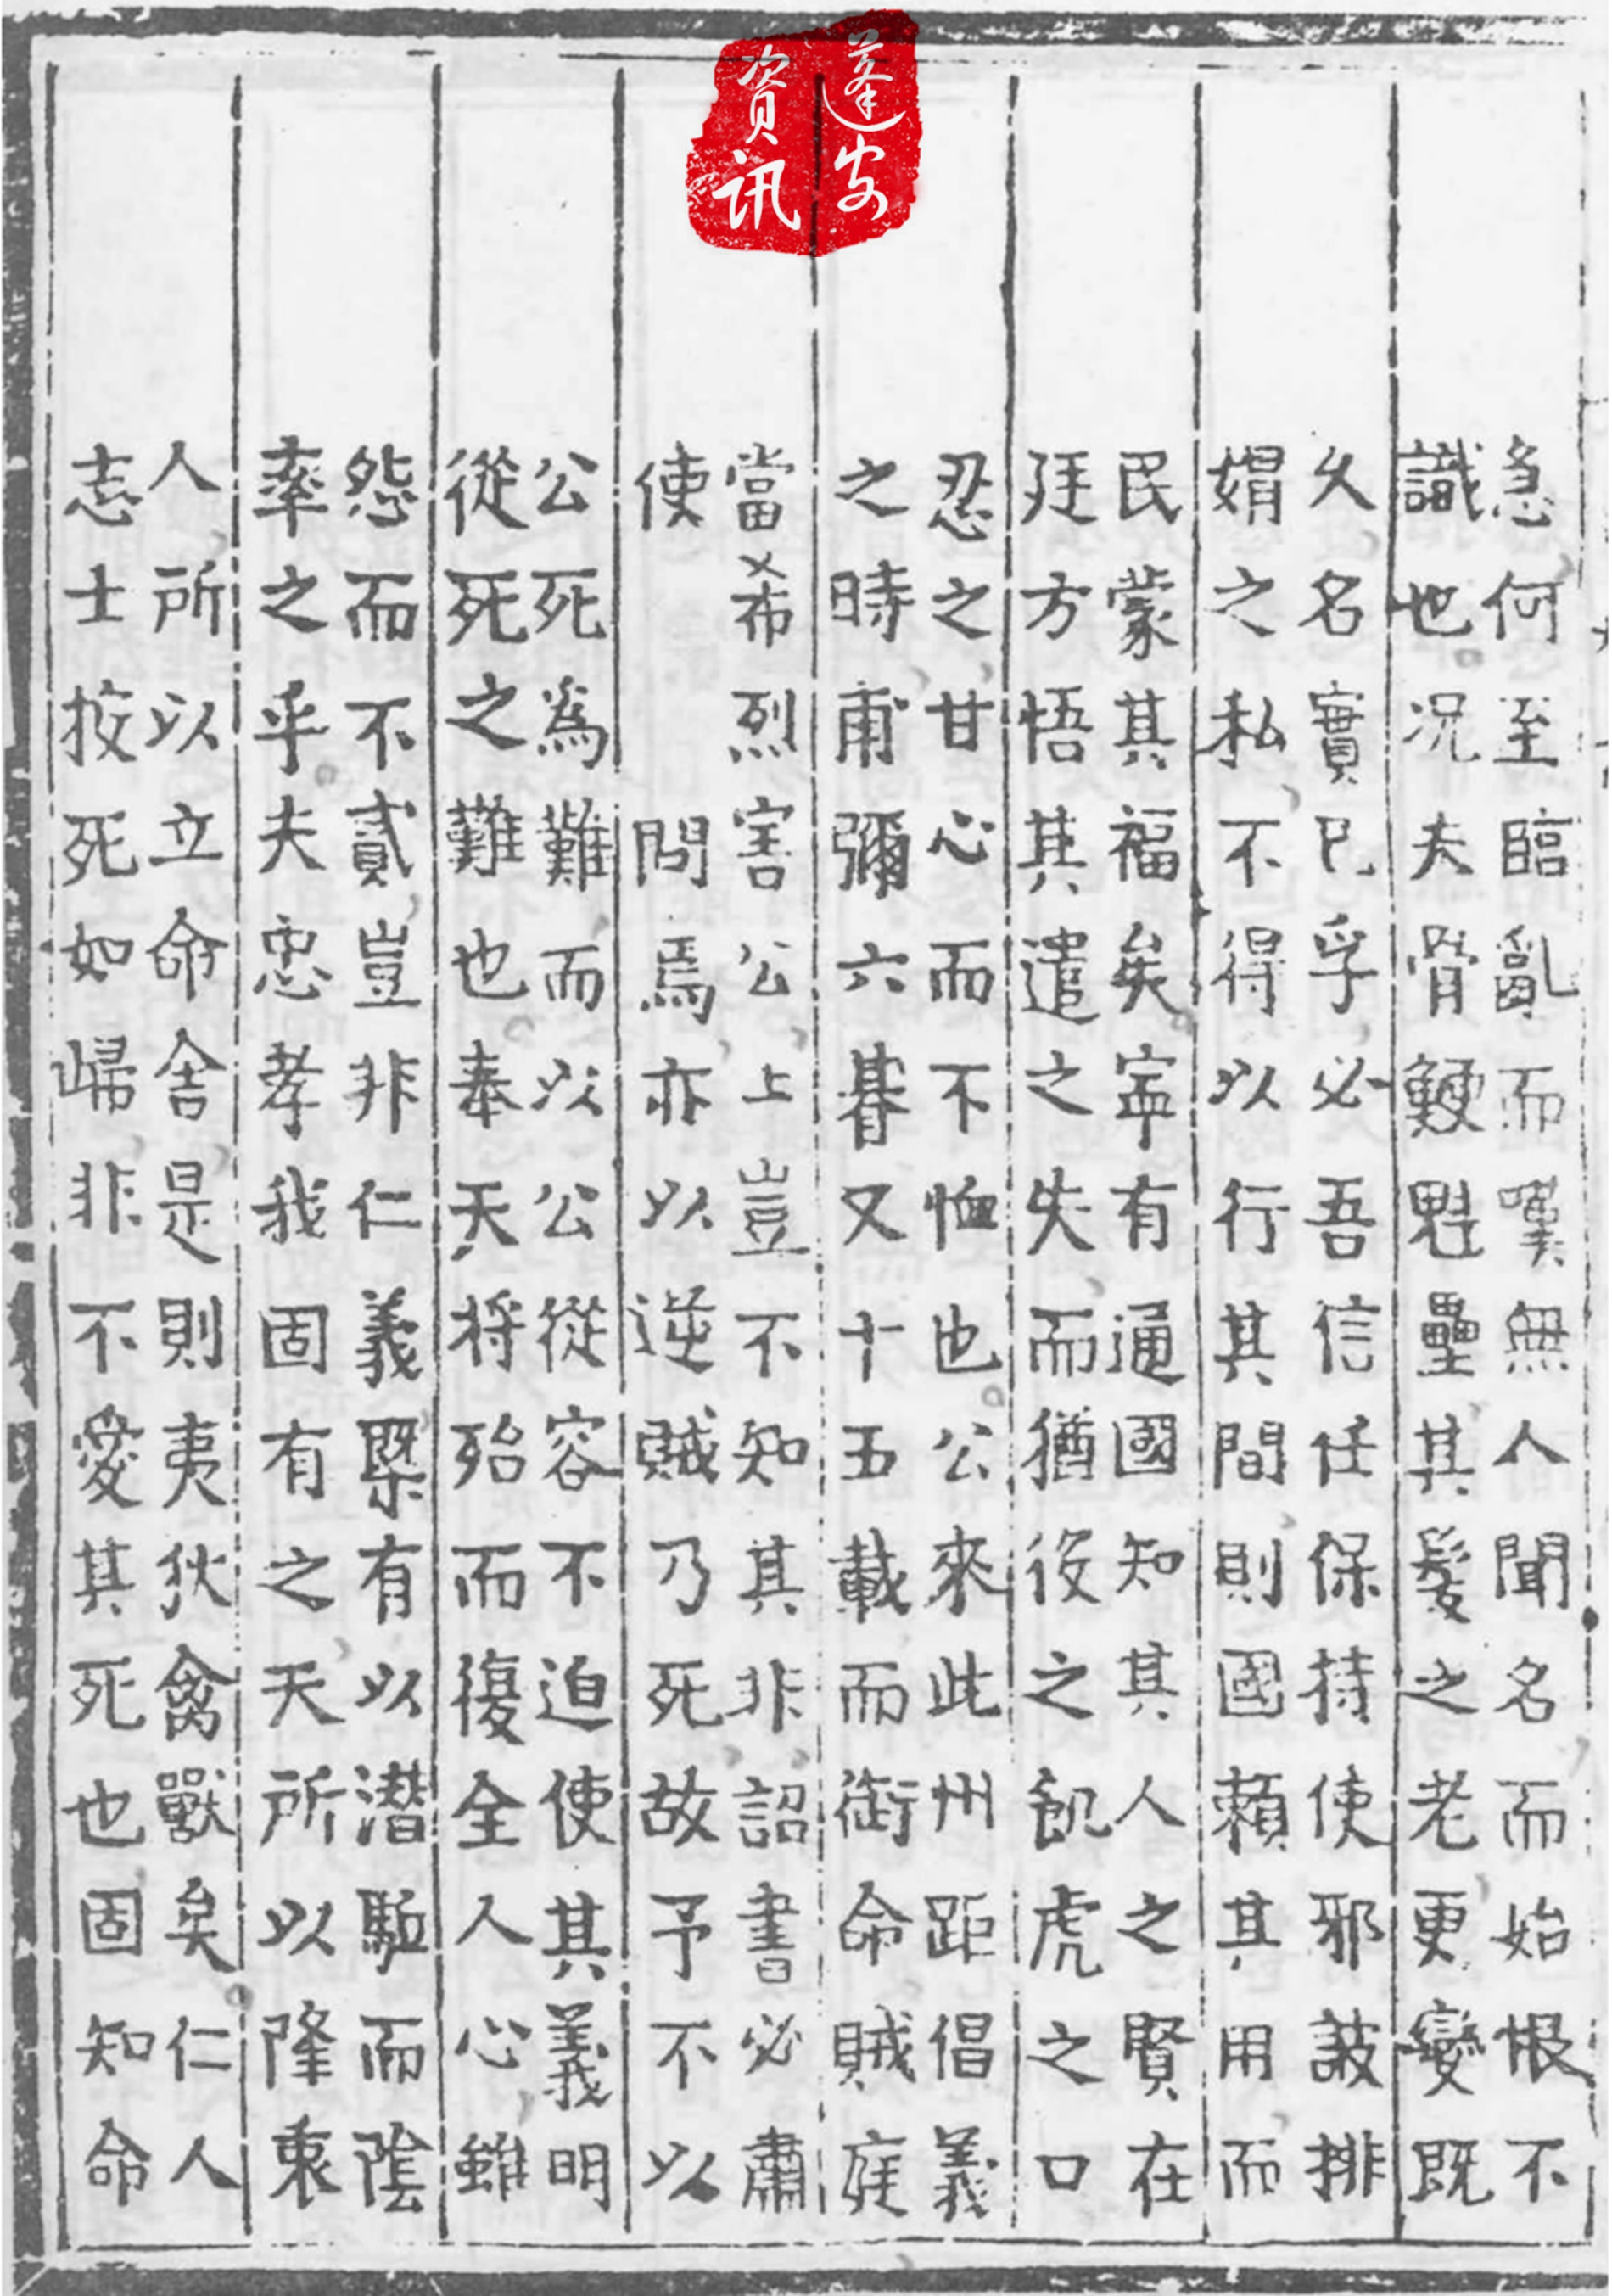 蓬安
资讯
急何至臨亂而嘆無人聞名而始恨不
識也况夫骨鯁魁壘其髮之老更變既
久名實已孚必吾信任保持使邪詖排
娟之私不得以行其間則國頼其用而
民蒙其福矣寕有通國知其人之賢在
廷方悟其遣之失而猶役之飢虎之口
忍之甘心而不恤也公來此州距倡義
之時甫彌六朞又十五載而銜命賊庭
當希烈害公上豈不知其非詔書必肅
使問焉亦以逆賊乃死故予不以
公死為難而以公從容不迫使其義明
從死之難也奉天将殆而復全人心雖
怨而不貳豈非仁義㮣有以潛驅而陰
率之乎夫忠孝我固有之天所以隆衷
人所以立命舍是則夷狄禽獸矣仁人
志士投死如歸非不愛其死也固知命